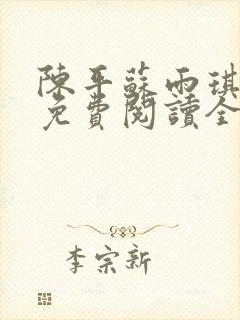 陳平蘇雨琪
免費閱讀全
李宗新